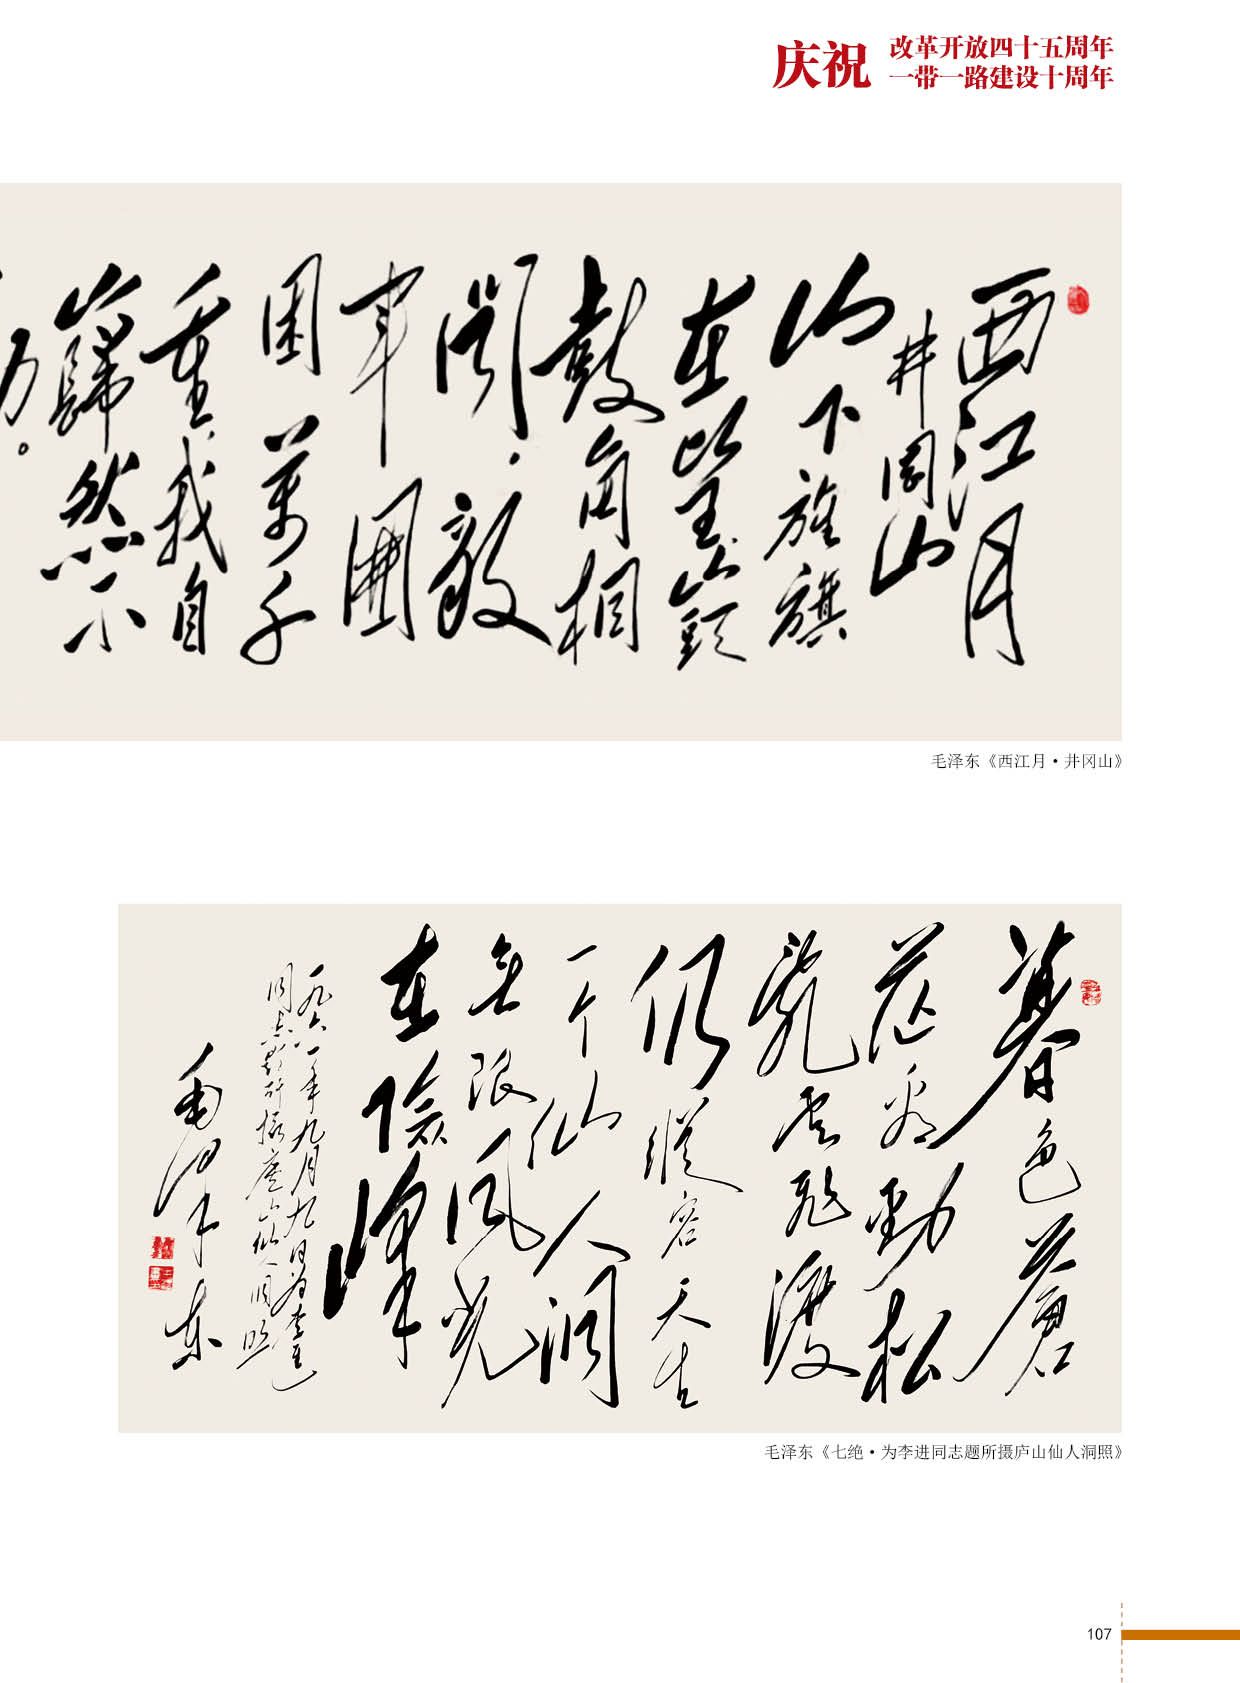 庆祝
改革开放四十五周年
一带一路建设十周年
西江月
井岡山
山下旌旗
在望山頭
鼓角相
聞敵
軍圍
困萬千
重我自
巋然不
毛泽东《西江月·井冈山》
暮色蒼
茫看勁松
亂雲飛渡
仍縱容天生
一个仙人洞
無限風光
在險峰
一九六一年九月九日為李進
同志題所攝廬山仙人洞照
毛澤东
毛泽东《七绝·为李进同志题所摄庐山仙人洞照》
107